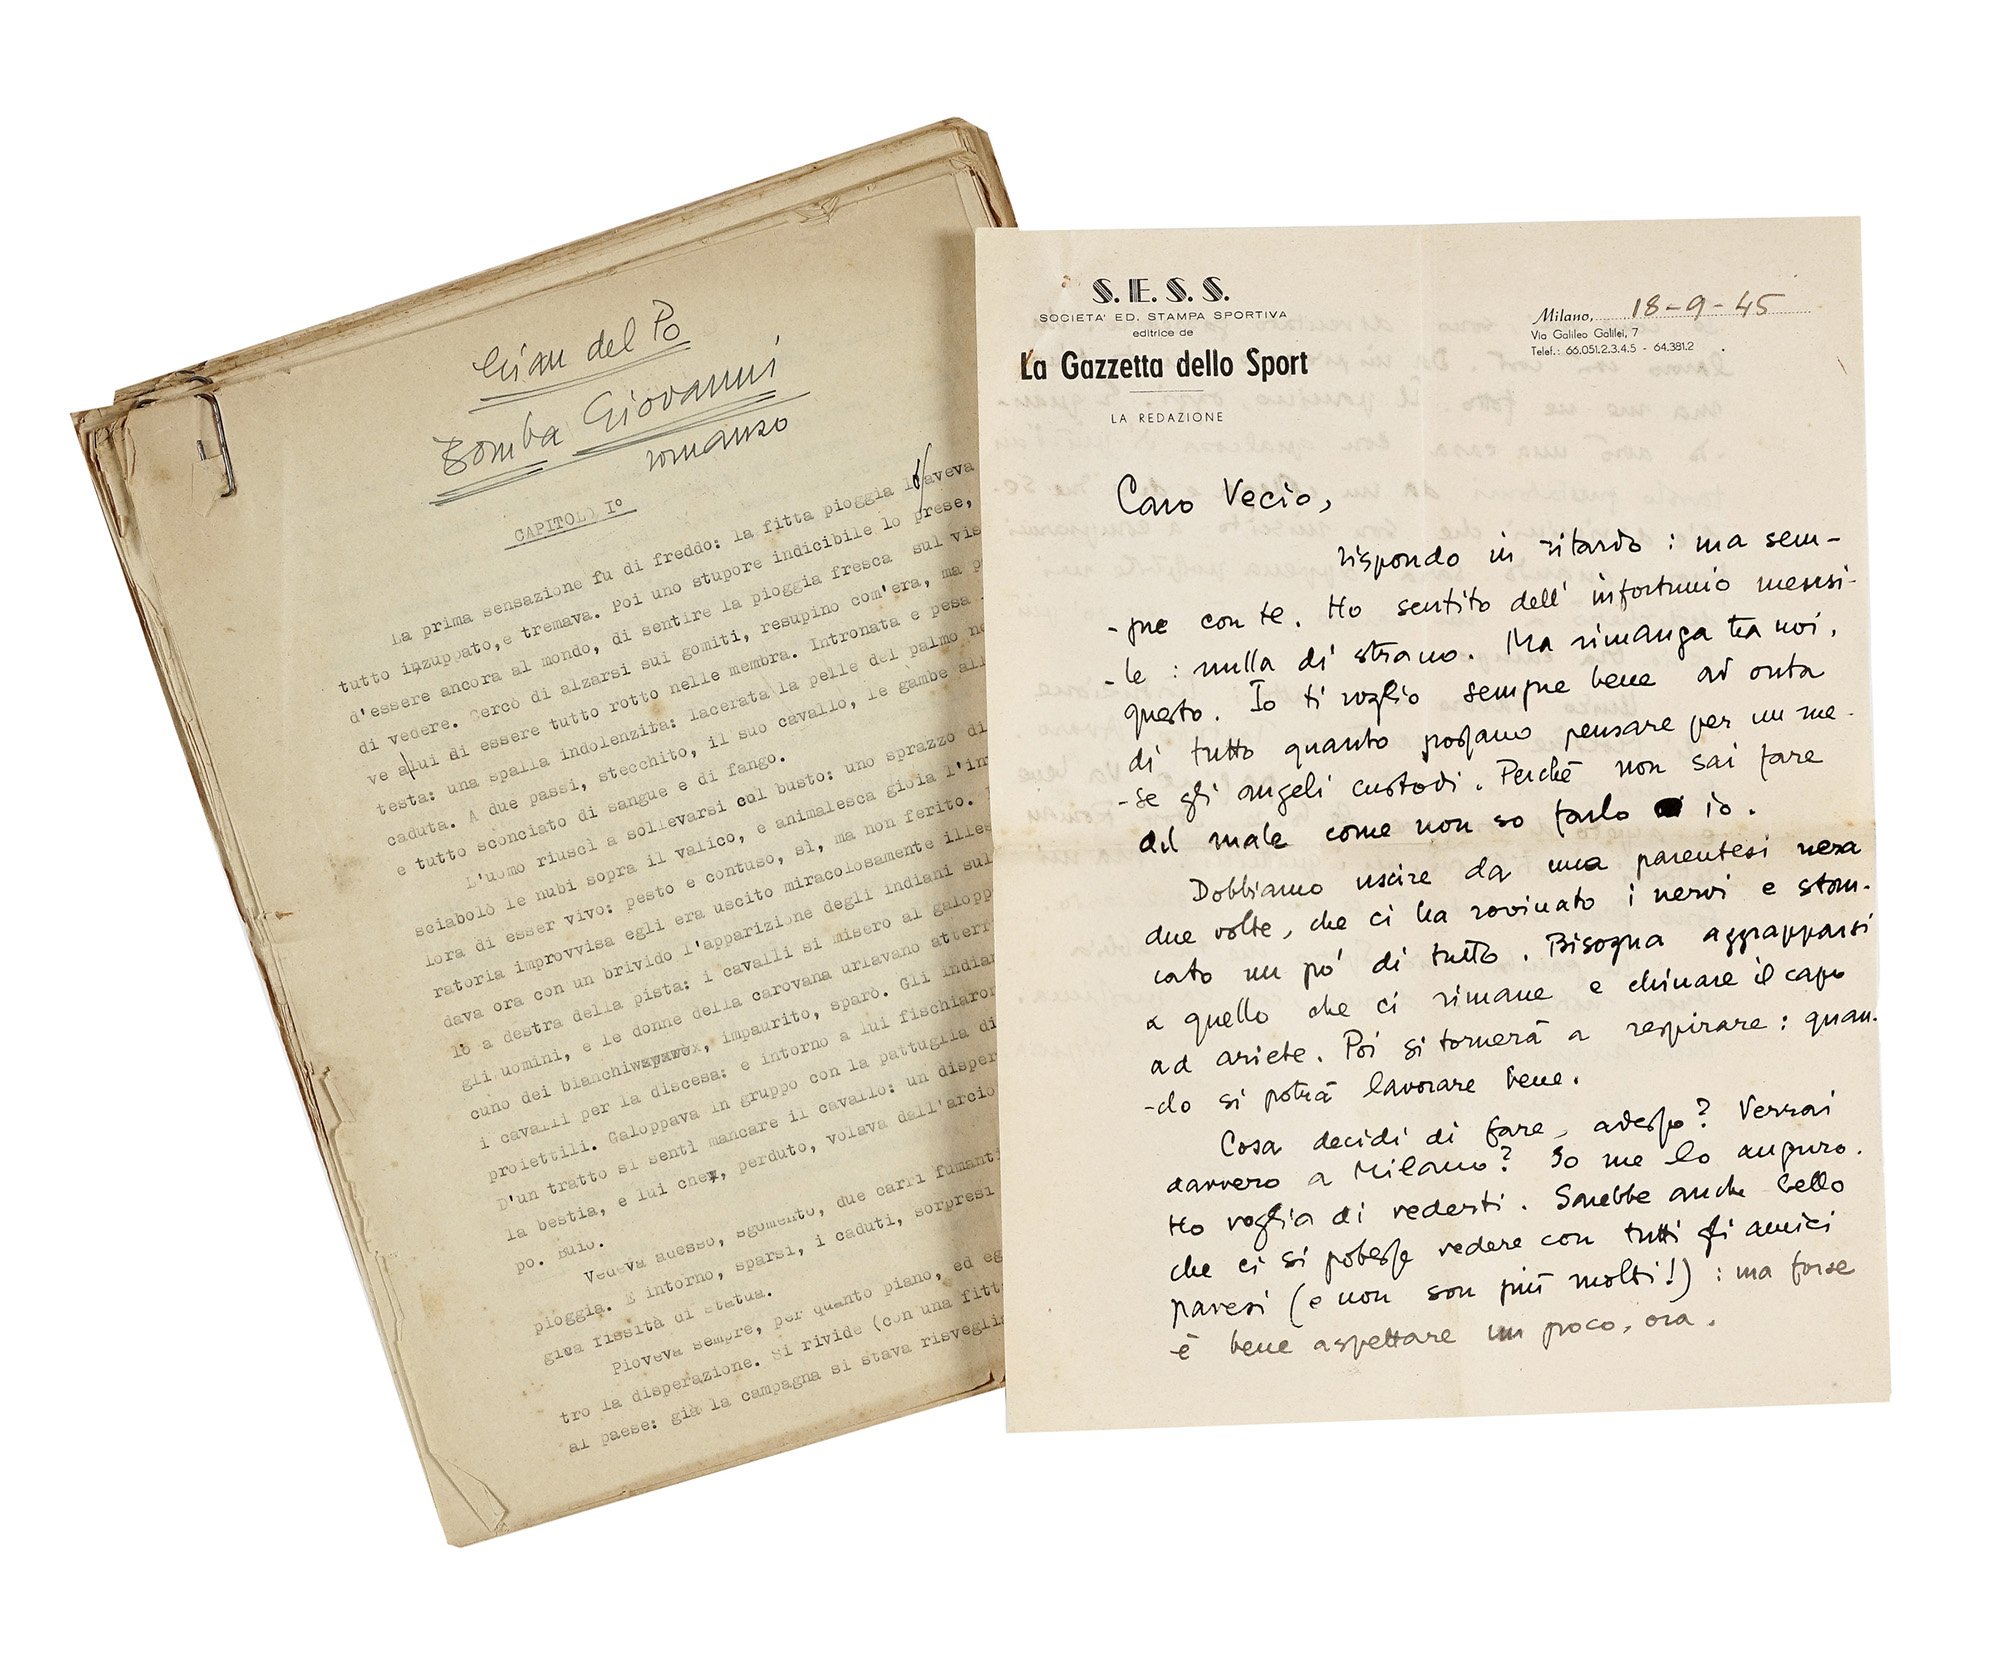 Gian del Po
Bomba Giovanni
romanzo
CAPITOLO I°
La prima sensazione fu di freddo: la fitta pioggia l'aveva
tutto inzuppato,e tremava. Poi uno stupore indicibile lo prese,
d'essere ancora al mondo, di sentire la pioggia fresca sul vis
di vedere. Cercò di alzarsi sui gomiti, resupino com'era, ma p
ve a lui di essere tutto rotto nelle membra. Intronata e pesa
testa: una spalla indolenzita: lacerata la pelle del palmo ne
caduta. A due passi, stecchito, il suo cavallo, le gambe all
e tutto sconciato di sangue e di fango.
L'uomo riuscì a sollevarsi col busto: uno sprazzo di
sciabolò le nubi sopra il valico, e animalesca gioia l'in
lora di esser vivo: pesto e contuso, sì, ma non ferito.
ratoria improvvisa egli era uscito miracolosamente illes
dava ora con un brivido l'apparizione degli indiani sul
lo a destra della pista: i cavalli si misero al galopp
gli uomini, e le donne della carovana urlavano atterr
cuno dei bianchi, impaurito, sparò. Gli indian
i cavalli per la discesa: e intorno a lui fischiaron
proiettili. Galoppava in gruppo con la pattuglia di
D'un tratto si sentì mancare il cavallo: un disper
la bestia, e lui che, perduto, volava dall'arcio
po. Buio.
Vedeva adesso, sgomento, due carri fumanti
pioggia. E intorno, sparsi, i caduti, sorpresi
gica fissità di statua.
Pioveva sempre, per quanto piano, ed eg
tro la disperazione. Si rivide (con una fitt
al paese: già la campagna si stava risveglia
S. E. S. S.
SOCIETA' ED. STAMPA SPORTIVA
editrice de
La Gazzetta dello Sport
LA REDAZIONE
Milano, 18-9-45
Via Galileo Galilei, 7
Telef.: 66.051.2.3.4.5 - 64.381.2
Caro Vecio,
rispondo in ritardo : ma sem-
-pre con te. Ho sentito dell' infortunio mensi-
-le : nulla di strano. Ma rimanga tra noi,
questo. Io ti voglio sempre bene ad onta
di tutto quanto possano pensare per un me-
-se gli angeli custodi. Perchè non sai fare
del male come non so farlo io.
Dobbiamo uscire da una parentesi nera
due volte, che ci ha rovinato i nervi e stom-
cato un pó di tutto. Bisogna aggrapparsi
a quello che ci rimane e chinare il capo
ad ariete. Poi si tornerà a respirare : quan-
-do si potrà lavorare bene.
Cosa decidi di fare, adesso? Verrai
davvero a Milano? Io me lo auguro.
Ho voglia di vederti. Sarebbe anche bello
che ci si potesse vedere con tutti gli amici
pavesi (e non son più molti!) : ma forse
è bene aspettare un poco, ora.